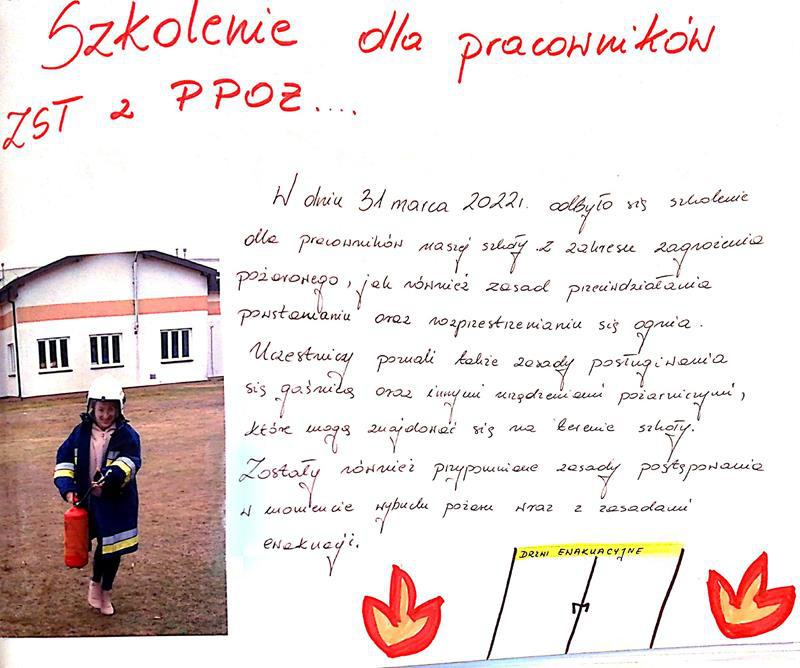 Szkolenie dla pracowników
ZST z PPOŻ....
W dniu 31 marca 2022r. odbyło się szkolenie
dla pracowników naszej szkoły z zakresu zagrożenia
pożarowego, jak również zasad przeciwdziałania
powstawaniu oraz rozprzestrzenianiu się ognia.
Uczestnicy poznali także zasady posługiwania
się gaśnicą oraz innymi urządzeniami pożarniczymi,
które mogą znajdować się na terenie szkoły.
Zostały również przypomniane zasady postępowania
w momencie wybuchu pożaru wraz z zasadami
ewakuacji.
DRZWI EWAKUACYJNE